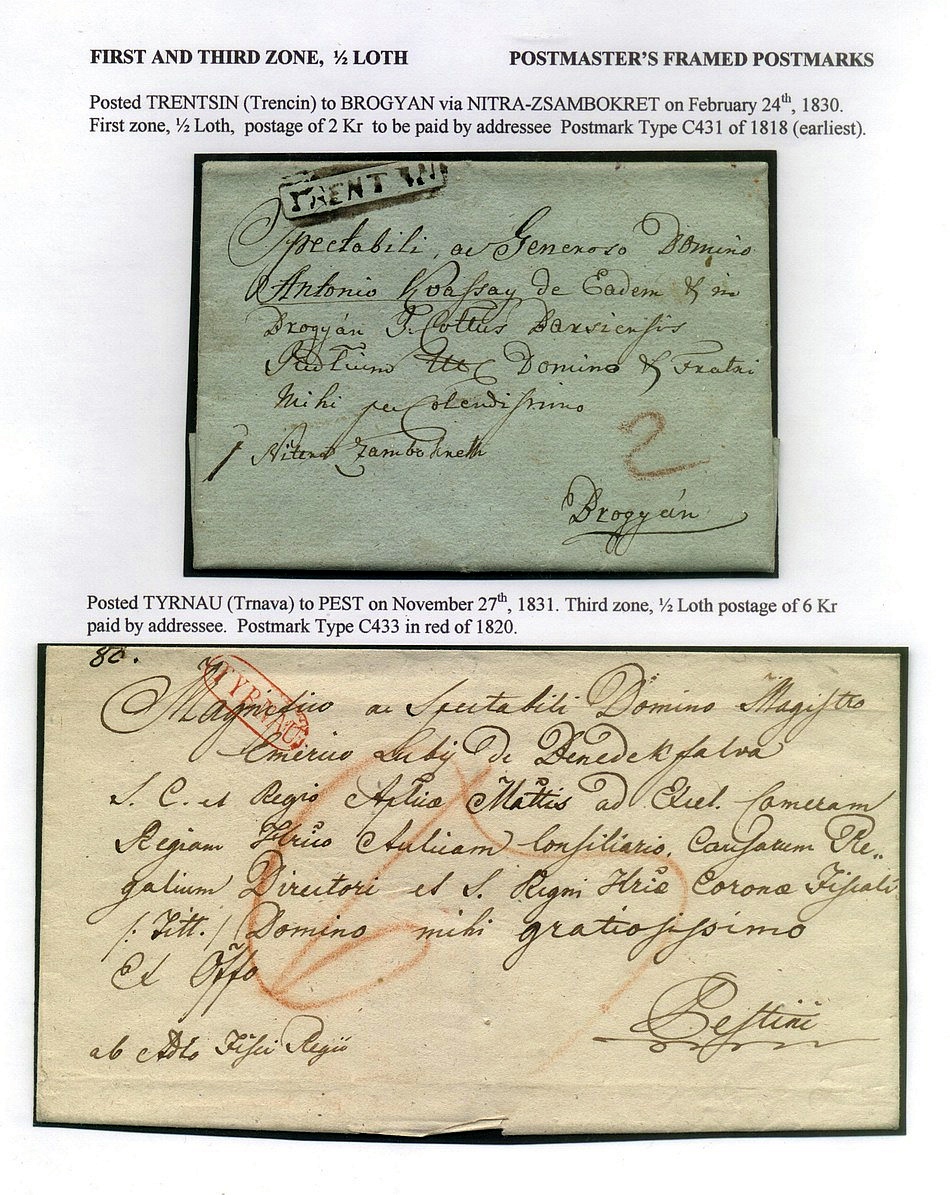 FIRST AND THIRD ZONE, ½ LOTH POSTMASTER'S FRAMED POSTMARKS
Posted TRENTSIN (Trencin) to BROGYAN via NITRA-ZSAMBOKRET on February 24th, 1830.
First zone, ½ Loth, postage of 2 Kr to be paid by addressee Postmark Type C431 of 1818 (earliest).
TRENT IN
Spectabili, ac Generoso Domino
Antonio Kvassay de Eadem & in
Brogyán I. Cottus Barsiensis
Domino & Fratri
Mihi per Colendissimo
Zambokreth
2
Brogyán
Posted TYRNAU (Trnava) to PEST on November 27th, 1831. Third zone, ½ Loth postage of 6 Kr
paid by addressee. Postmark Type C433 in red of 1820.
TYRNAU
Magnifico ac Spectabili Domino Magistro
Emerico de Benedekfalva
S. C. et Regio Aplicae Mattis ad Excel. Cameram
Regiam Hrico Aulicam Consiliario, Causarum Re„
galium Directori et S. Regni Hric Coronae Fiscali
/: Titt. / Domino mihi gratiosissimo
Ex Offo
6
Pestini
ab Fisci Regii